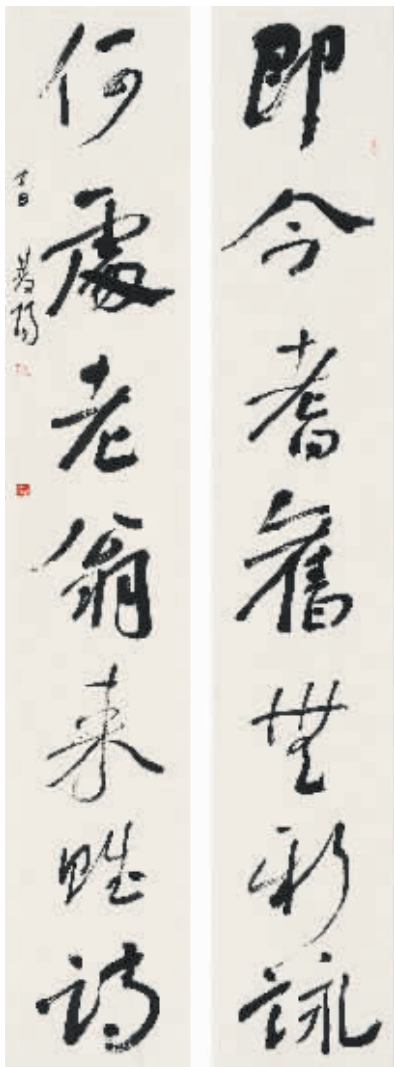 即今耆舊無新詠
何處老翁來賦詩
丁酉